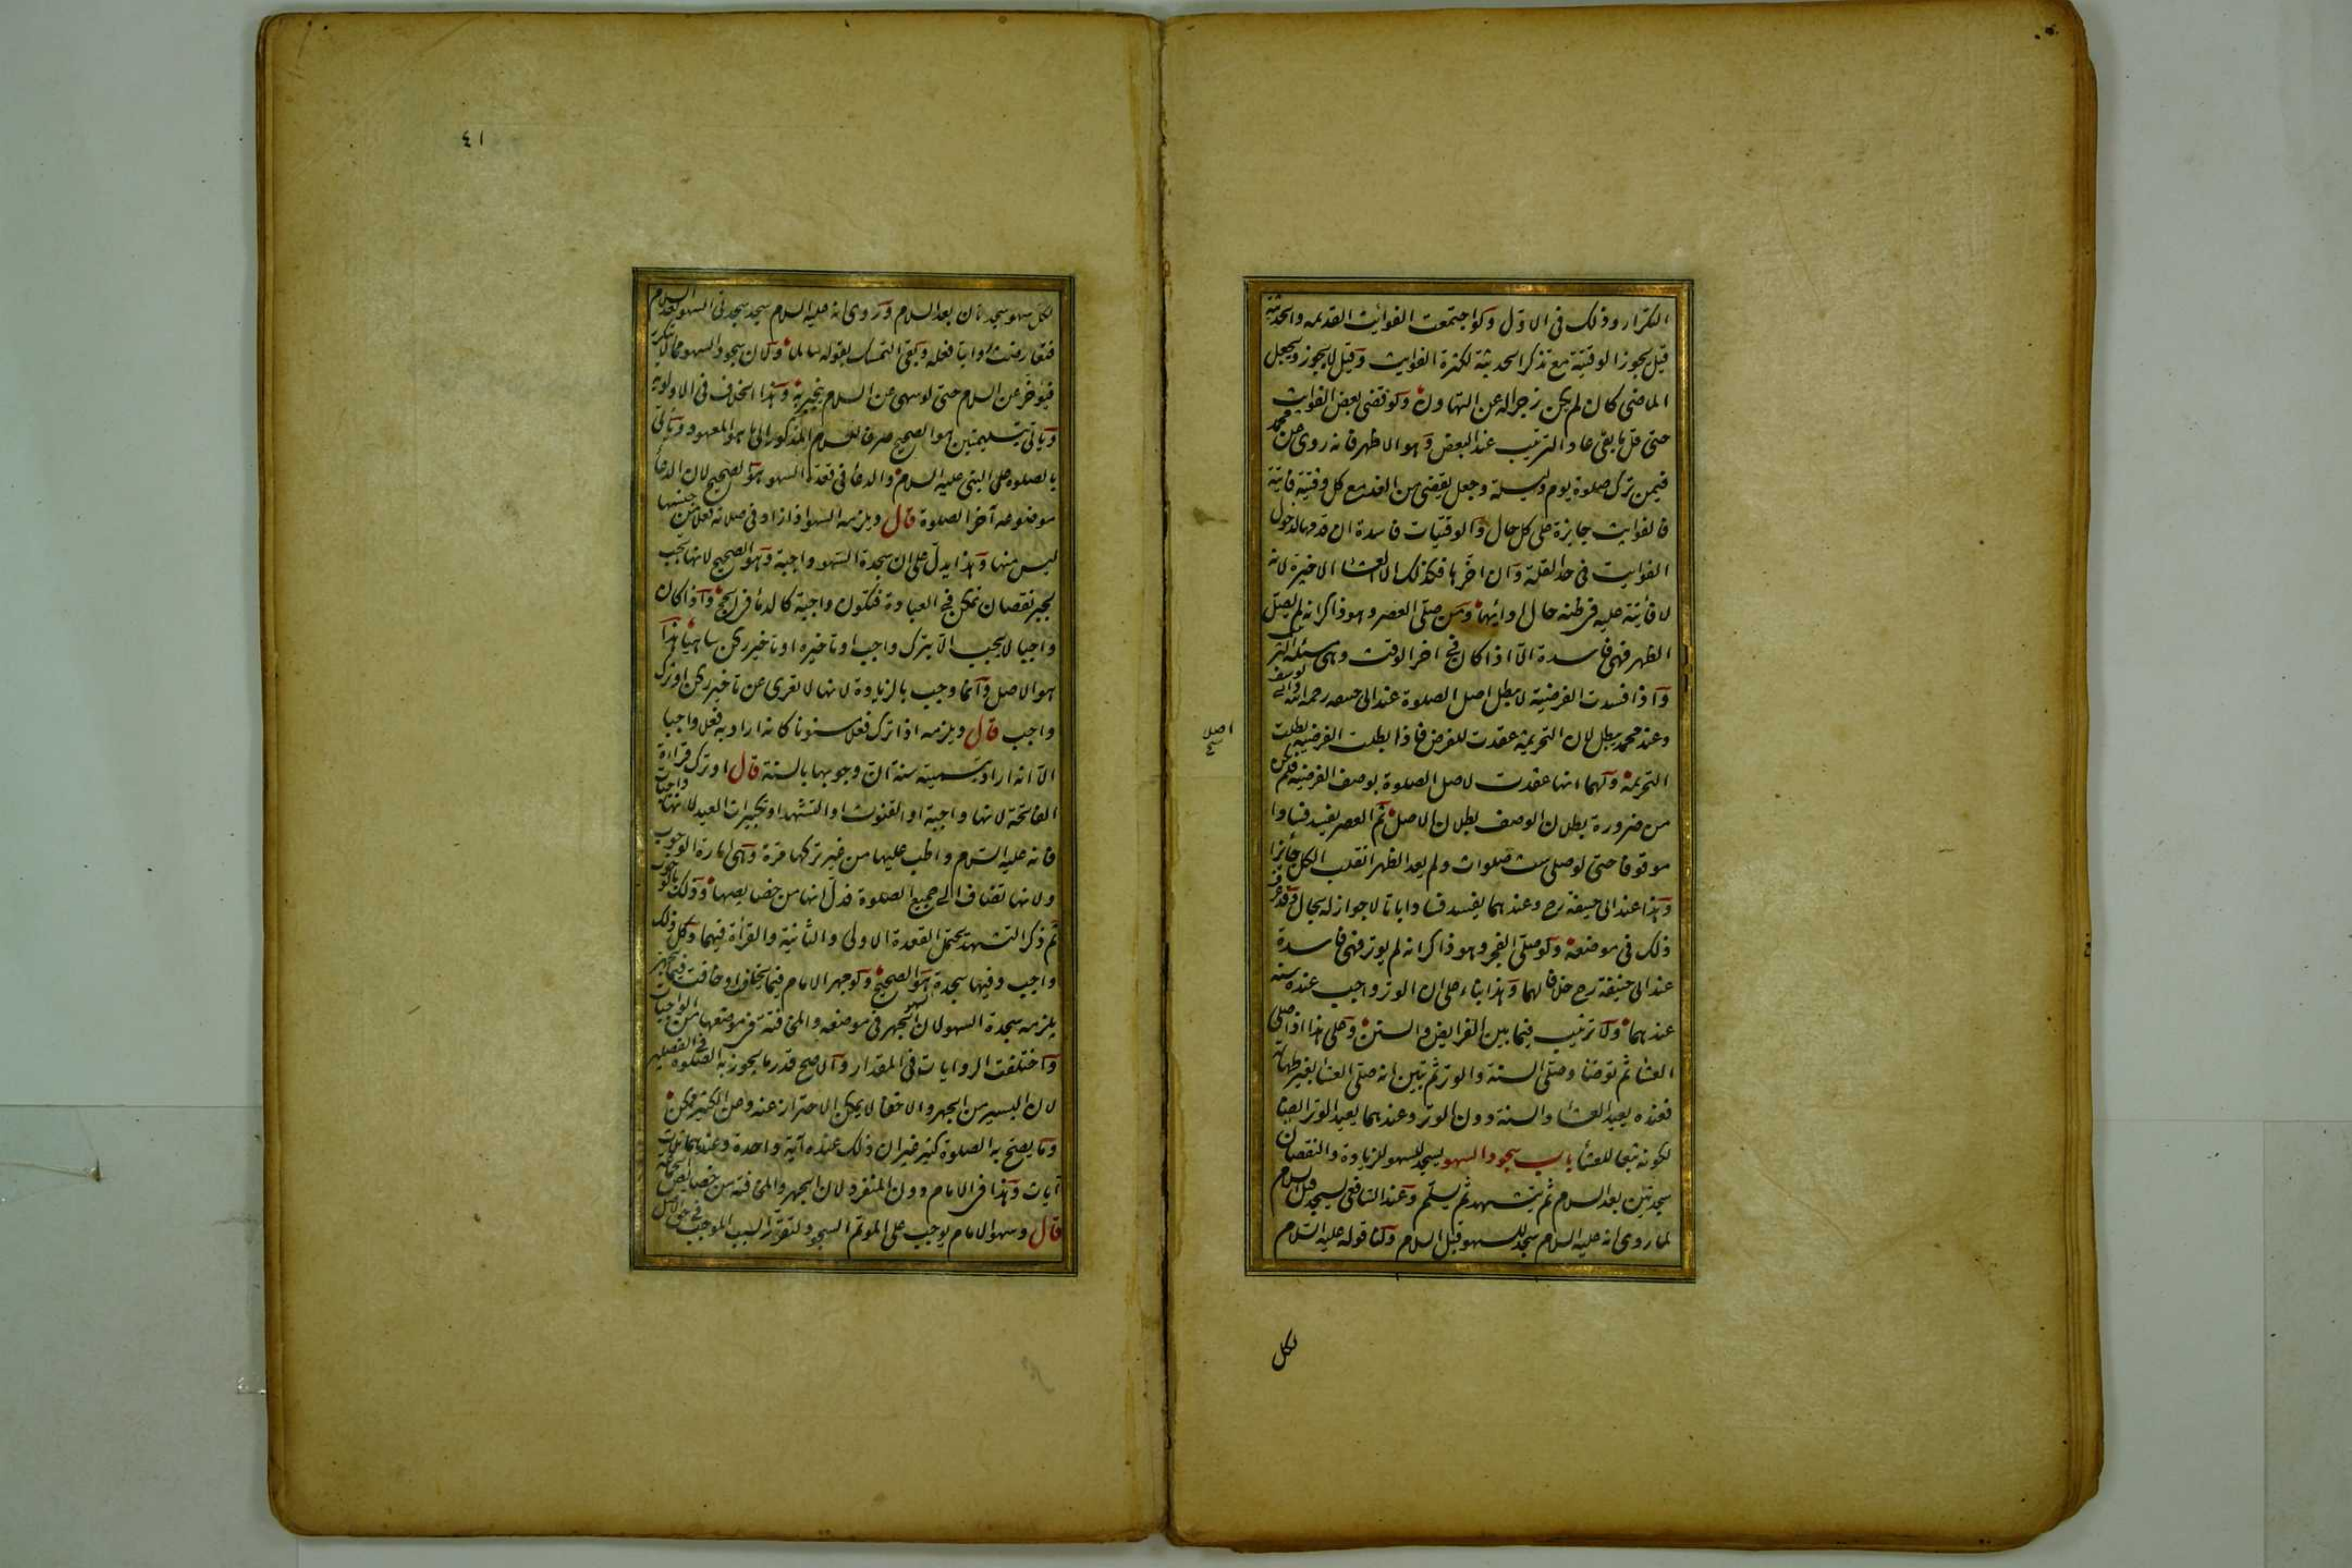 التكرار وذلك في الاول ولو اجتمعت الفوائت القديمه والحديثة
قيل يجوز الوقتية مع تذكر الحديثة لكثرة الفوايت وقيل لا يجوز ويجعل
الماضي كان لم يكن زجرا له عن التهاون ولو قضى بعض الفوايت
حتى قل ما بقى عاد الترتيب عند البعض وهو الاظهر فانه روى عن محمد
فيمن ترك صلوة يوم وليلة وجعل يقضى من الغد مع كل وقتية فايتة
فالفوايت جايزة على كل حال والوقتيات فاسدة ان قدمها لدخول
الفوايت في حد القلة وان اخرها فكذلك الا العشا الاخيرة لانه
لا فائتة عليه في ظنه حال ادائها ومن صلى العصر وهو ذاكر انه لم يصل
الظهر فهي فاسدة الا اذا كان في اخر الوقت وهي مسئلة الترتيب
واذا فسدت الفرضية لا يبطل اصل الصلوة عند ابى حنيفه رحمه الله وابي يوسف
وعند محمد يبطل لان التحريمة عقدت للفرض فاذا بطلت الفرضية بطلت
اصلا
التحريمة ولهما انها عقدت لاصل الصلوة بوصف الفرضية فلم يكن
من ضرورة بطلان الوصف بطلان الاصل ثم العصر يفسد فسادا
موقوفا حتى لو صلى ست صلوات ولم يعد الظهر انقلب الكل جائزا
وهذا عند ابى حنيفة رح وعندهما يفسد فسادا باتا لا جواز له بحال وقد عرف
ذلك في موضعه ولو صلى الفجر وهو ذاكر انه لم يوتر فهي فاسدة
عند ابى حنيفة رح خلافا لهما وهذا بناء على ان الوتر واجب عنده سنة
عندهما ولا ترتيب فيما بين الفرايض والسنن وعلى هذا اذا صلى
العشا ثم توضا وصلى السنة والوتر ثم تبين انه صلى العشا بغير طهارة
فعنده يعيد العشا والسنة دون الوتر وعندهما يعيد الوتر ايضا
لكونه تبعا للعشا باب سجود السهو يسجد للسهو للزيادة والنقصان
سجدتين بعد السلام ثم يتشهد ثم يسلم وعند الشافعى يسجد قبل السلام
لما روى انه عليه السلام سجد للسهو قبل السلام ولنا قوله عليه السلام
لكل
٤١
لكل سهو سجدتان بعد السلام وروى انه عليه السلام سجد سجدتى السهو بعد السلام
فتعارضت روايتا فعله وبقى التمسك بقوله سالما ولان سجود السهو مما لا يتكرر
فيؤخر عن السلام حتى لو سهى عن السلام ينجبر به وهذا الخلاف في الاولوية
وياتى بتسليمتين هو الصحيح صرفا للسلام المذكور الى ما هو المعهود وياتى
بالصلوة على النبى عليه السلام والدعا في قعدة السهو هو الصحيح لان الدعا
موضعه آخر الصلوة قال ويلزمه السهو اذا زاد في صلاته فعلا من جنسها
ليس منها وهذا يدل على ان سجدة السهو واجبة وهو الصحيح لانها تجب
لجبر نقصان تمكن في العبادة فتكون واجبة كالدما في الحج واذا كان
واجبا لا يجب الا بترك واجب او تاخيره او تاخير ركن ساهيا هذا
هو الاصل وانما وجب بالزيادة لانها لا تعرى عن تاخير ركن او ترك
واجب قال ويلزمه اذا ترك فعلا مسنونا كانه اراد به فعلا واجبا
الا انه اراد بتسميته سنة ان وجوبها بالسنة قال او ترك قراءة
الفاتحة لانها واجبة او القنوت او التشهد او تكبيرات العيد لانها واجبات
فانه عليه السلام واظب عليها من غير تركها مرة وهي امارة الوجوب
ولانها تضاف الى جميع الصلوة فدل انها من خصايصها وذلك بالوجوب
ثم ذكر التشهد يحتمل القعدة الاولى والثانية والقرأة فيهما وكل ذلك
واجب وفيها سجدة هو الصحيح ولو جهر الامام فيما يخافت او خافت فيما يجهر
يلزمه سجدة السهو لان الجهر في موضعه والمخافتة في موضعها من الواجبات
واختلفت الروايات في المقدار والاصح قدر ما يجوز به الصلوة في الفصلين
لان اليسير من الجهر والاخفا لا يمكن الاحتراز عنه وعن الكثير ممكن
وما يصح به الصلوة كثير غير ان ذلك عنده آية واحدة وعندهما ثلاث
آيات وهذا في الامام دون المنفرد لان الجهر والمخافتة من خصايص الجماعة
قال وسهو الامام يوجب على الموتم السجود لتقرر السبب الموجب في حق الاصل